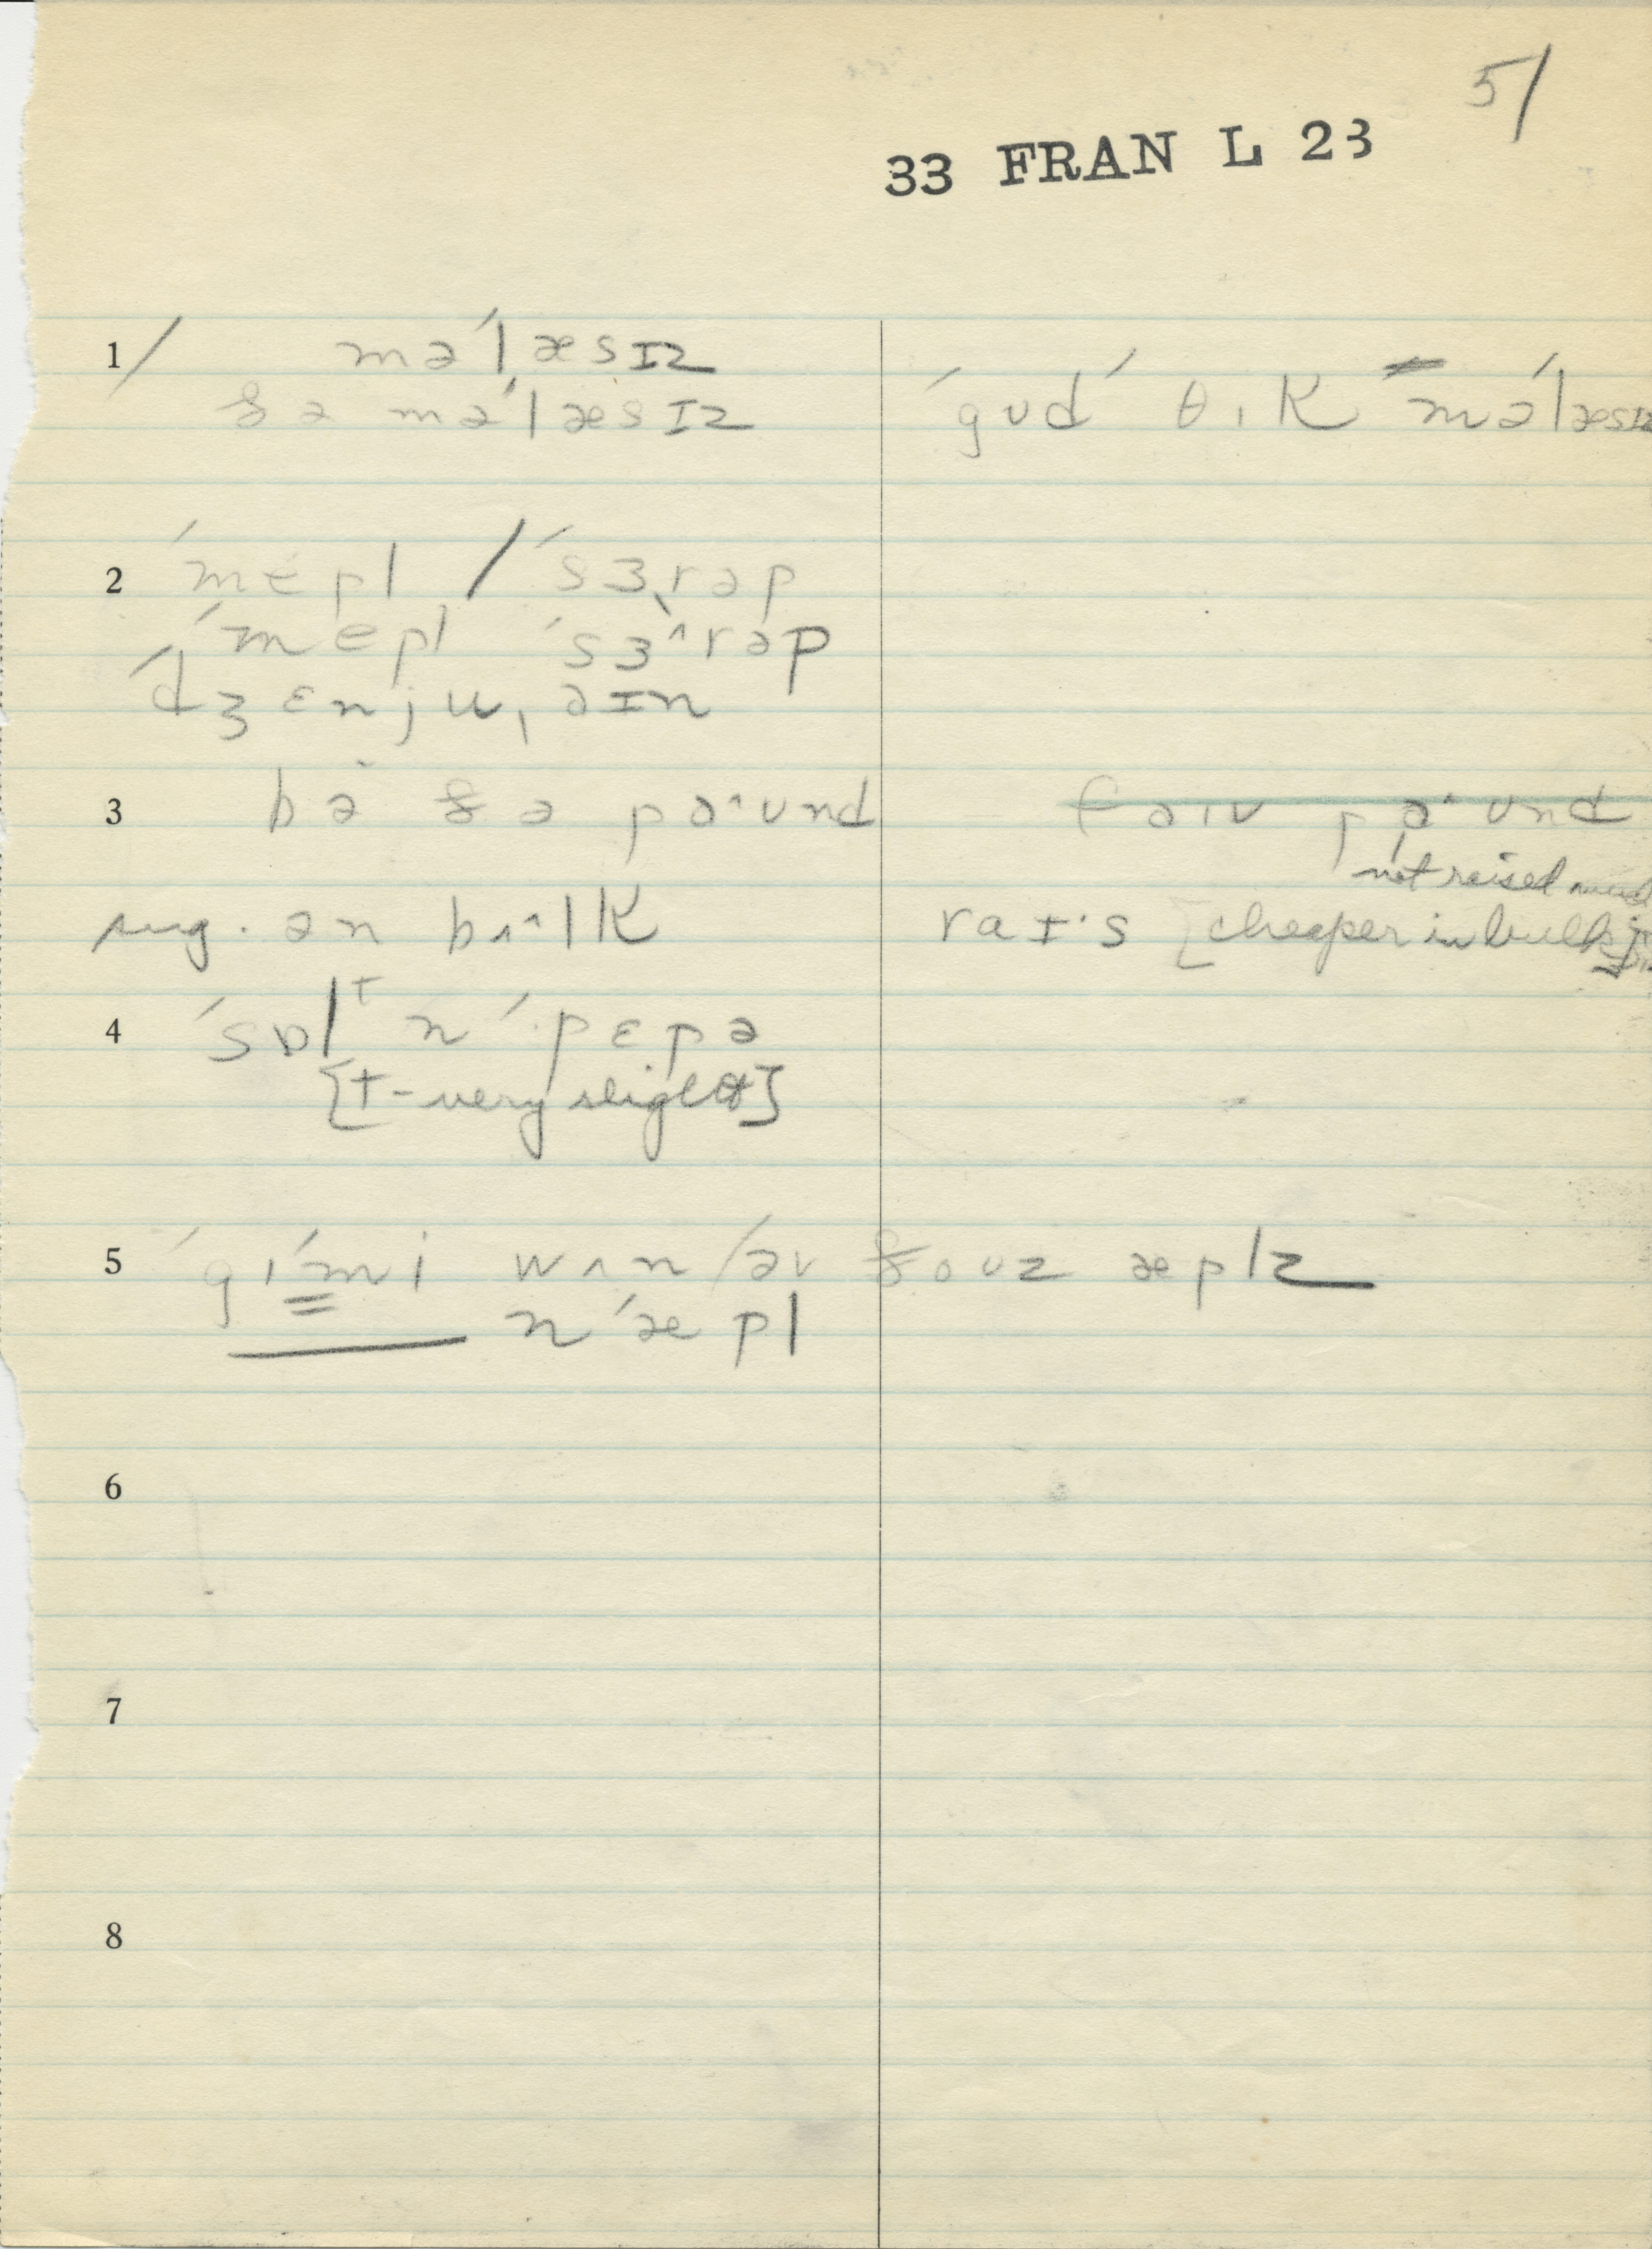 51
33 FRAN L 23
1/ mə́læsɪz
ðə mə́læsɪz ́gʊd ́ θɪk mə́læsɪz
2 ́mepl / ́sɜrəp
́mepl ́sɜ^rəp
́dʒɛnju,əɪn
3 bə ðə pa^ʊnd faɪv pa^ʊnd
not raised
sug. ən bʌ^lK raɪ·s [cheaper in bulk]
4 ́sɒlᵗ n ́pɛpə
[t - very slight]
5 ́gɪ ́mi wʌn/əv ðoʊz æplz
n ́æpl
6
7
8